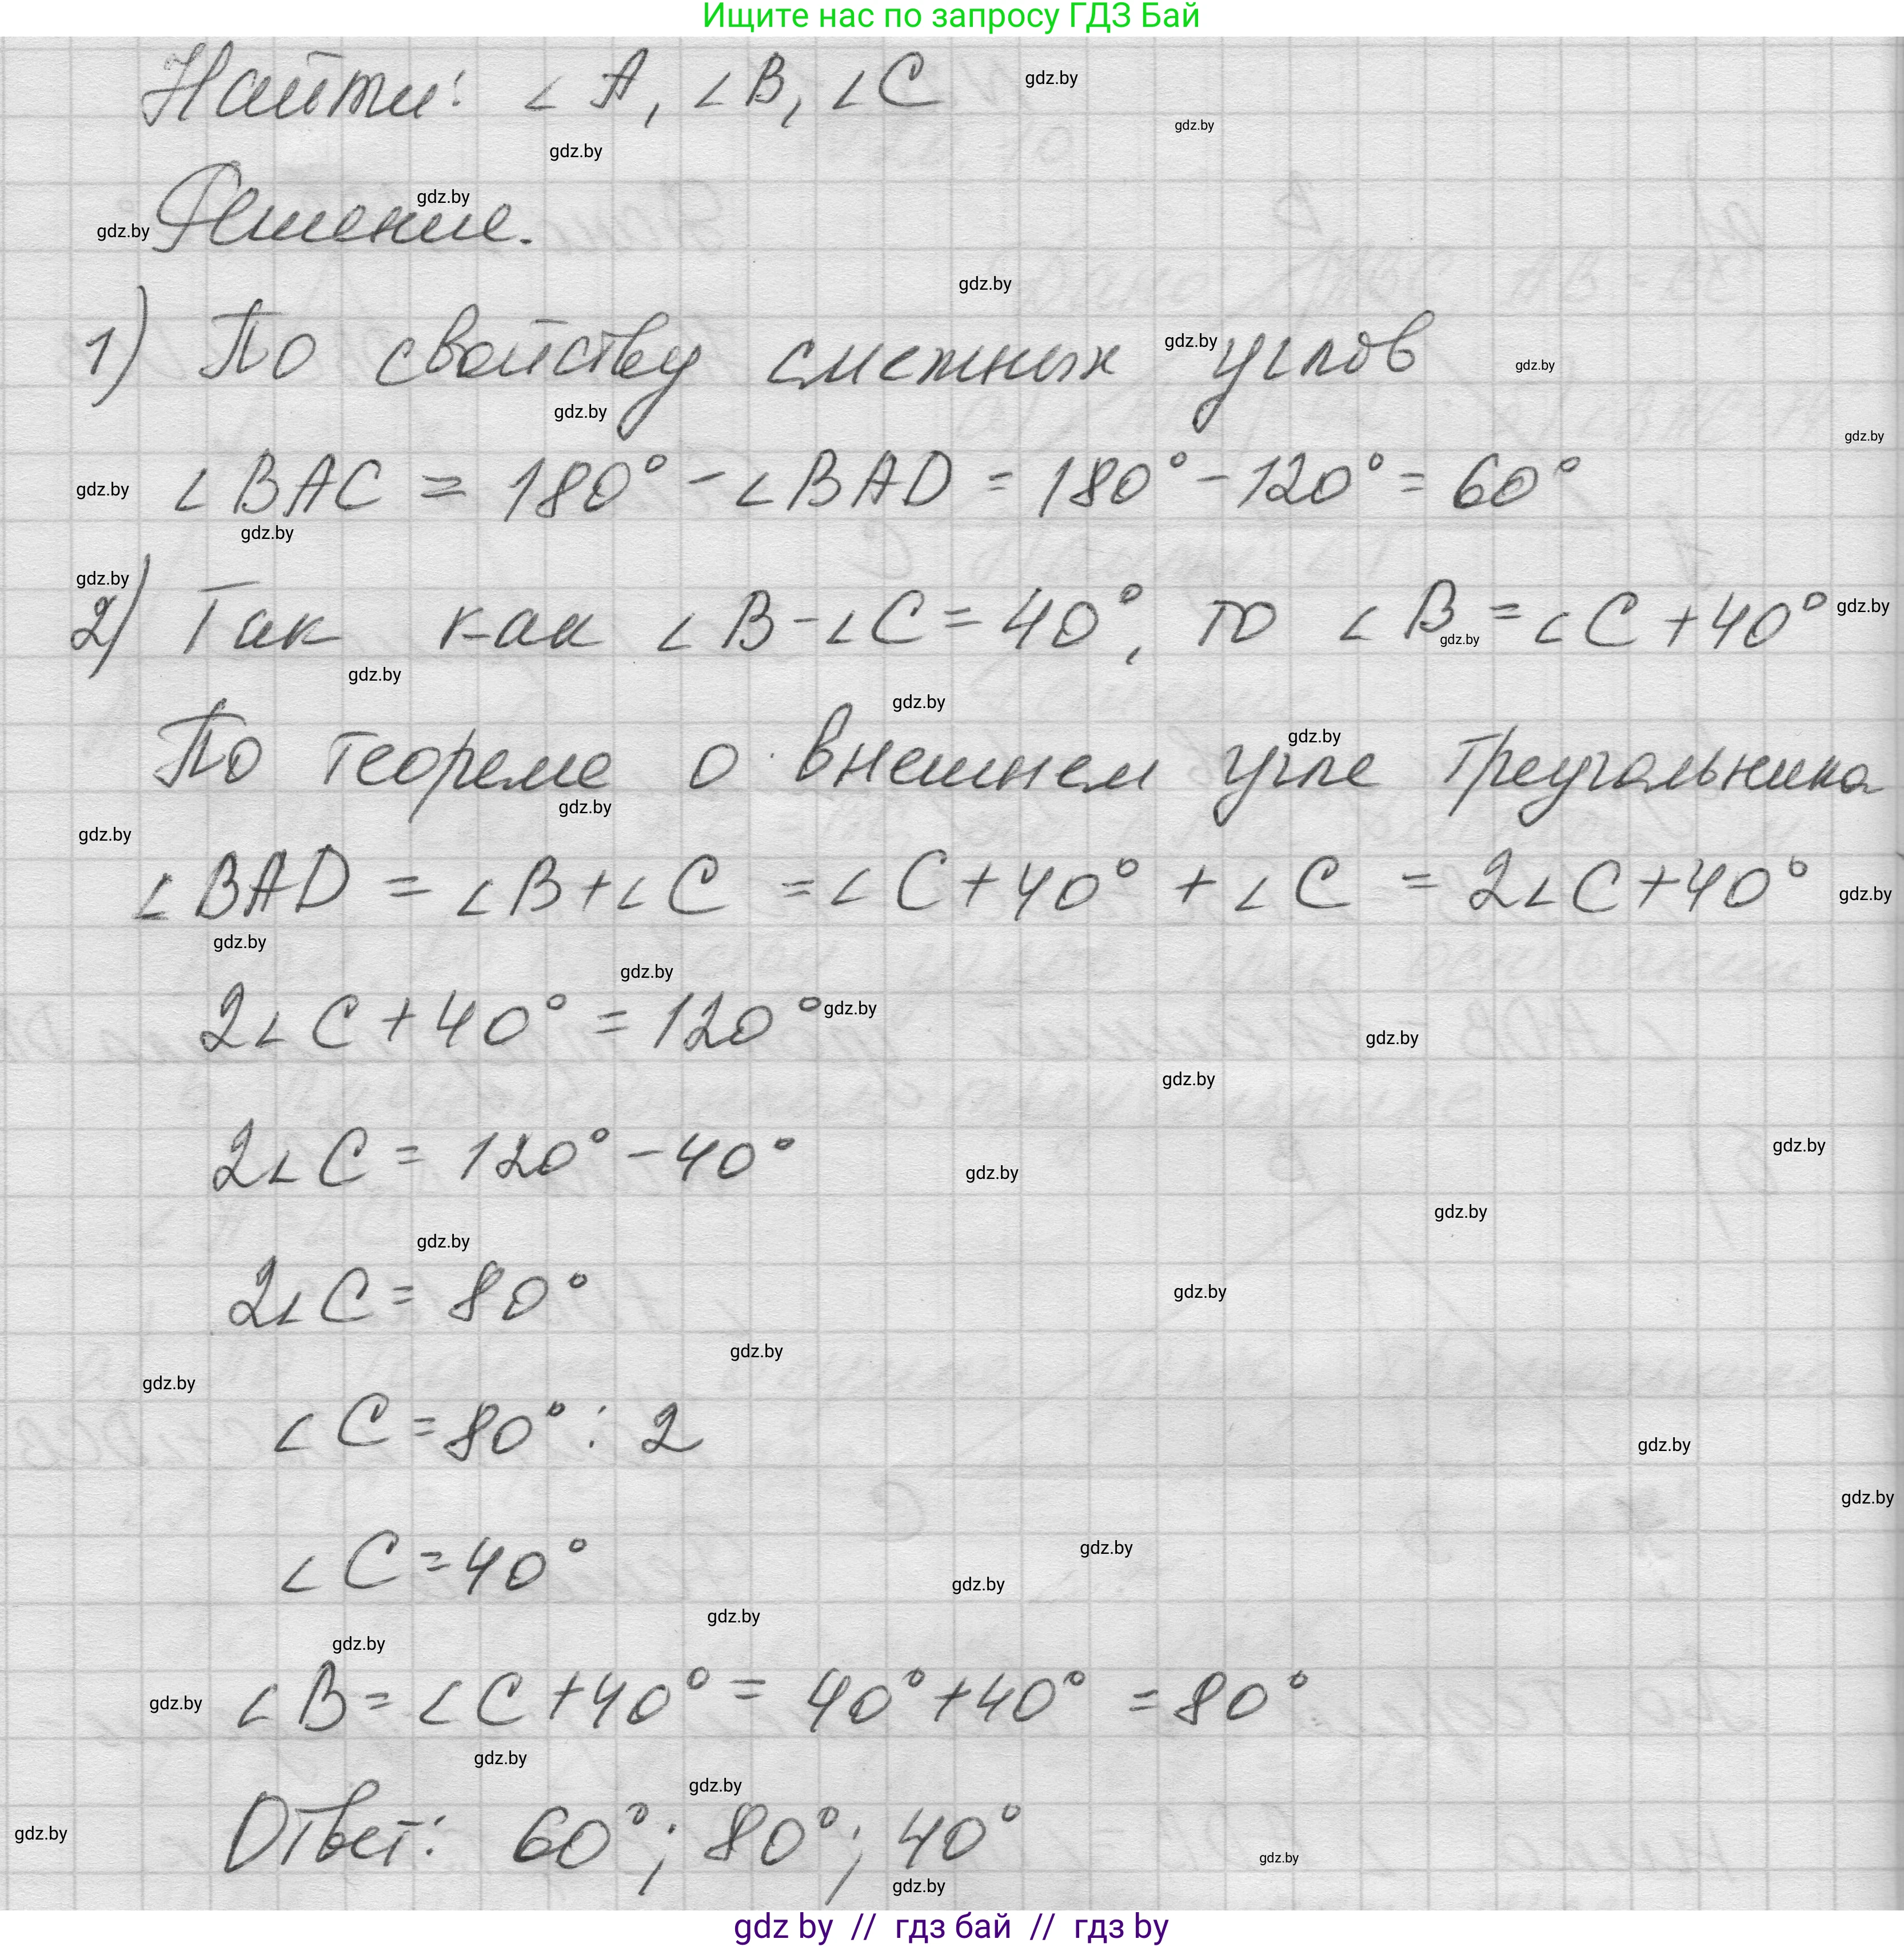 Ищите нас по запросу ГДЗ Бай
Найти: ∠A, ∠B, ∠C
gdz.by
gdz.by
gdz.by
Решение.
gdz.by
gdz.by
gdz.by
1) По свойству смежных углов
gdz.by
gdz.by
gdz.by
gdz.by
∠BAC = 180° - ∠BAD = 180° - 120° = 60°
gdz.by
gdz.by
gdz.by
2) Так как ∠B - ∠C = 40°, то ∠B = ∠C + 40°
gdz.by
gdz.by
gdz.by
gdz.by
По теореме о внешнем угле треугольника
gdz.by
gdz.by
gdz.by
∠BAD = ∠B + ∠C = ∠C + 40° + ∠C = 2∠C + 40°
gdz.by
gdz.by
gdz.by
2∠C + 40° = 120°
gdz.by
gdz.by
gdz.by
2∠C = 120° - 40°
gdz.by
gdz.by
gdz.by
gdz.by
2∠C = 80°
gdz.by
gdz.by
gdz.by
∠C = 80° : 2
gdz.by
gdz.by
∠C = 40°
gdz.by
gdz.by
gdz.by
gdz.by
∠B = ∠C + 40° = 40° + 40° = 80°
gdz.by
gdz.by
gdz.by
Ответ: 60°; 80°; 40°
gdz.by
gdz.by
gdz.by
gdz by // гдз бай // гдз by